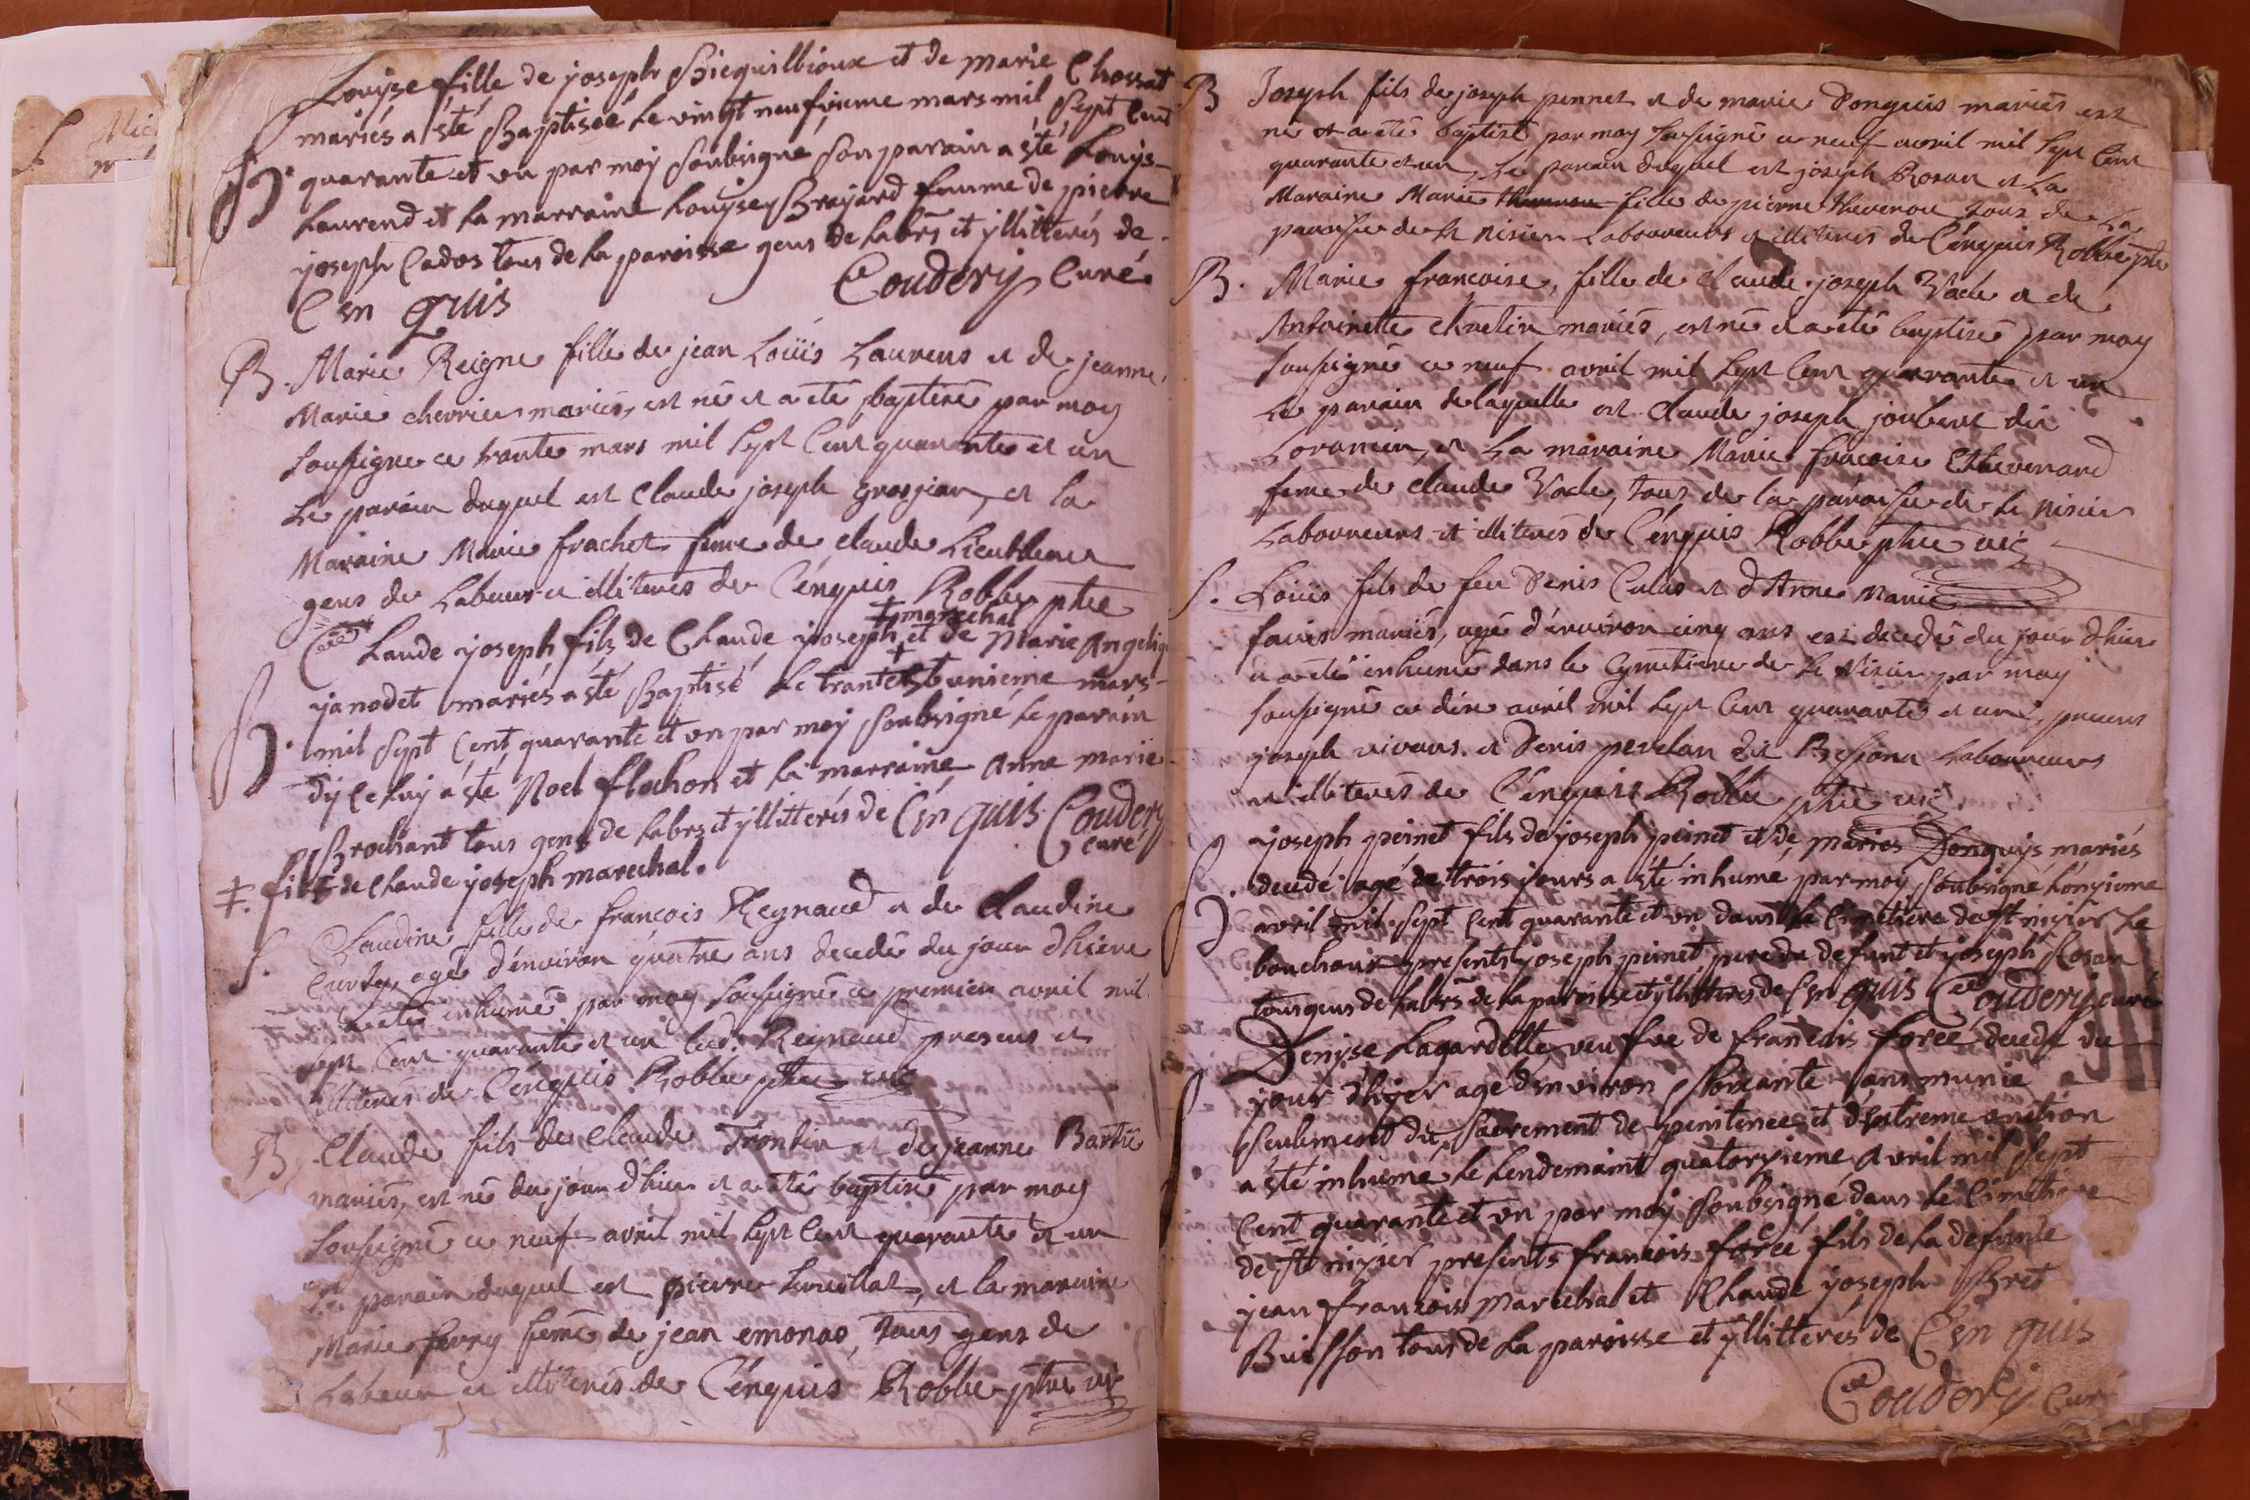 Louyse fille de joseph et de marie Chossat
mariés a êté Baptisée le vingt neufvieme mars mil sept Cent
B. quarante et un par moy soubsigné son parain a êté Louys
Laurend et la marraine Louyse Brayard femme de pierre
joseph Cados tous de la paroisse gens de labrs et yllitterés de
Cen quis Coudery Curé
B. Marie Reigne fille de jean Loüis Laurens et de jeanne
Marie chevrier mariés, est né et a été baptisé par moy
soussigné ce trante mars mil sept Cent quarante et un
Le parain duquel est Claude joseph grosjean, et la
Maraine Marie frachet feme de claude
gens de Labeur et illiterés de Cénquis Robbe ptre
‡ marechal
Claude joseph fils de Claude joseph et de Marie Angeliq
janodet mariés a êté Baptisé le trante et unieme mars
B. mil sept Cent quarante et un par moy soubsigné le parain
dyceluy a êté Noel flochon et la marraine Anne marie
Brochant tous gens de labrs et yllitterés de Cen quis Coudery
curé
‡. fils de Claude joseph marechal.
S. Claudine fille de francois Reynaud et de Claudine
Curty, agé d'environ quatre ans decedé du jour d'hiere
a été inhumé par moy soussigné ce premier avril mil
sept Cent quarante et un led. Reynaud present et
illiterés de Cénquis Robbe ptre vic
B Claude fils de Claude Trontin et de jeanne
mariés, est né du jour d'hier et a été baptisé par moy
soussigné ce neuf avril mil sept Cent quarante et un
Le parain duquel est pierre et la maraine
Marie feme de jean tous gens de
Labeur et illiterés de Cénquis Robbe ptre vic
B Joseph fils de joseph pennet et de marie Donguis mariés est
né et a été baptisé par moy soussigné ce neuf avril mil sept Cent
quarante et un, Le parain duquel est joseph Rosan et La
Maraine Marie fille de pierre thevenon tous de La
paroisse de St nisier Laboureurs et illiterés de Cénquis Robbe ptre
B. Marie francoise, fille de Claude joseph Vade et de
Antoinette chatelin mariés, est né et a été baptisé par moy
soussigné ce neuf avril mil sept Cent quarante et un
Le parain de laquelle est Claude joseph joubert dit
et La maraine Marie francoise thevenard
feme de claude Vade, tous de la paroisse de St nisier
Laboureurs et illiterés de Cénquis Robbe ptre vic
S. Loüis fils de feu Denis Culas et d'Anne Marie
mariés, agé d'environ cinq ans est decedé du jour d'hier
et a été inhumé dans le Cymetiere de St Nisier par moy
soussigné ce dix avril mil sept Cent quarante et un, presents
joseph et Denis dit Laboureurs
et illiterés de Cénquis Robbe ptre vic
joseph peinet fils de joseph peinet et de marie Donguys mariés
S. decedé agé de trois jours a êté inhumé par moy soubsigné Lonzieme
avril mil sept Cent quarante et un dans le Cimetiere de St nizier le
bouchoux presents joseph peinet pere du defunt et joseph Rosan
tous gens de labrs de la paroisse et yllitterés de Cen quis Coudery curé
Denyse Lagardette veufve de francois forée decedé du
S jour d'hyer agé denviron soixante ans munie
seulement du sacrement de penitence et d'extreme onction
a êté inhumé le lendemaint quatorzieme Avril mil sept
Cent quarante et un par moy soubsigné dans le Cimetiere
de St nizier presents francois forée fils de la defunte
jean francois Marechal et Claude joseph Bret
Buisson tous de la paroisse et yllitterés de Cen quis
Coudery Curé